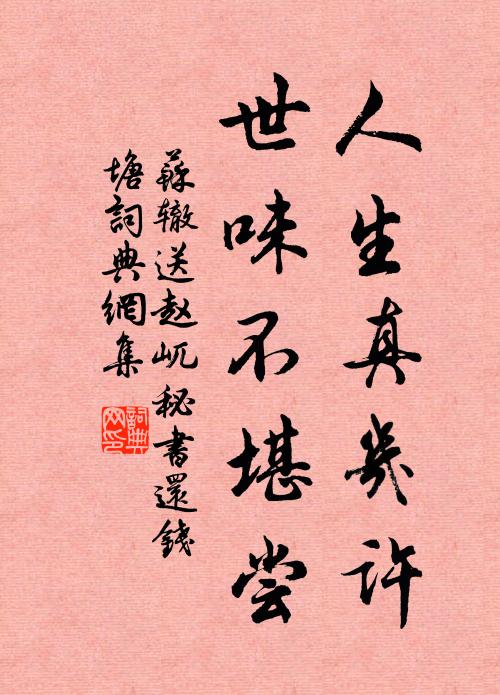 人生真幾许
世味不堪尝
蘇辙送赵屼秘書還錢
塘詞典網集
詞典网印